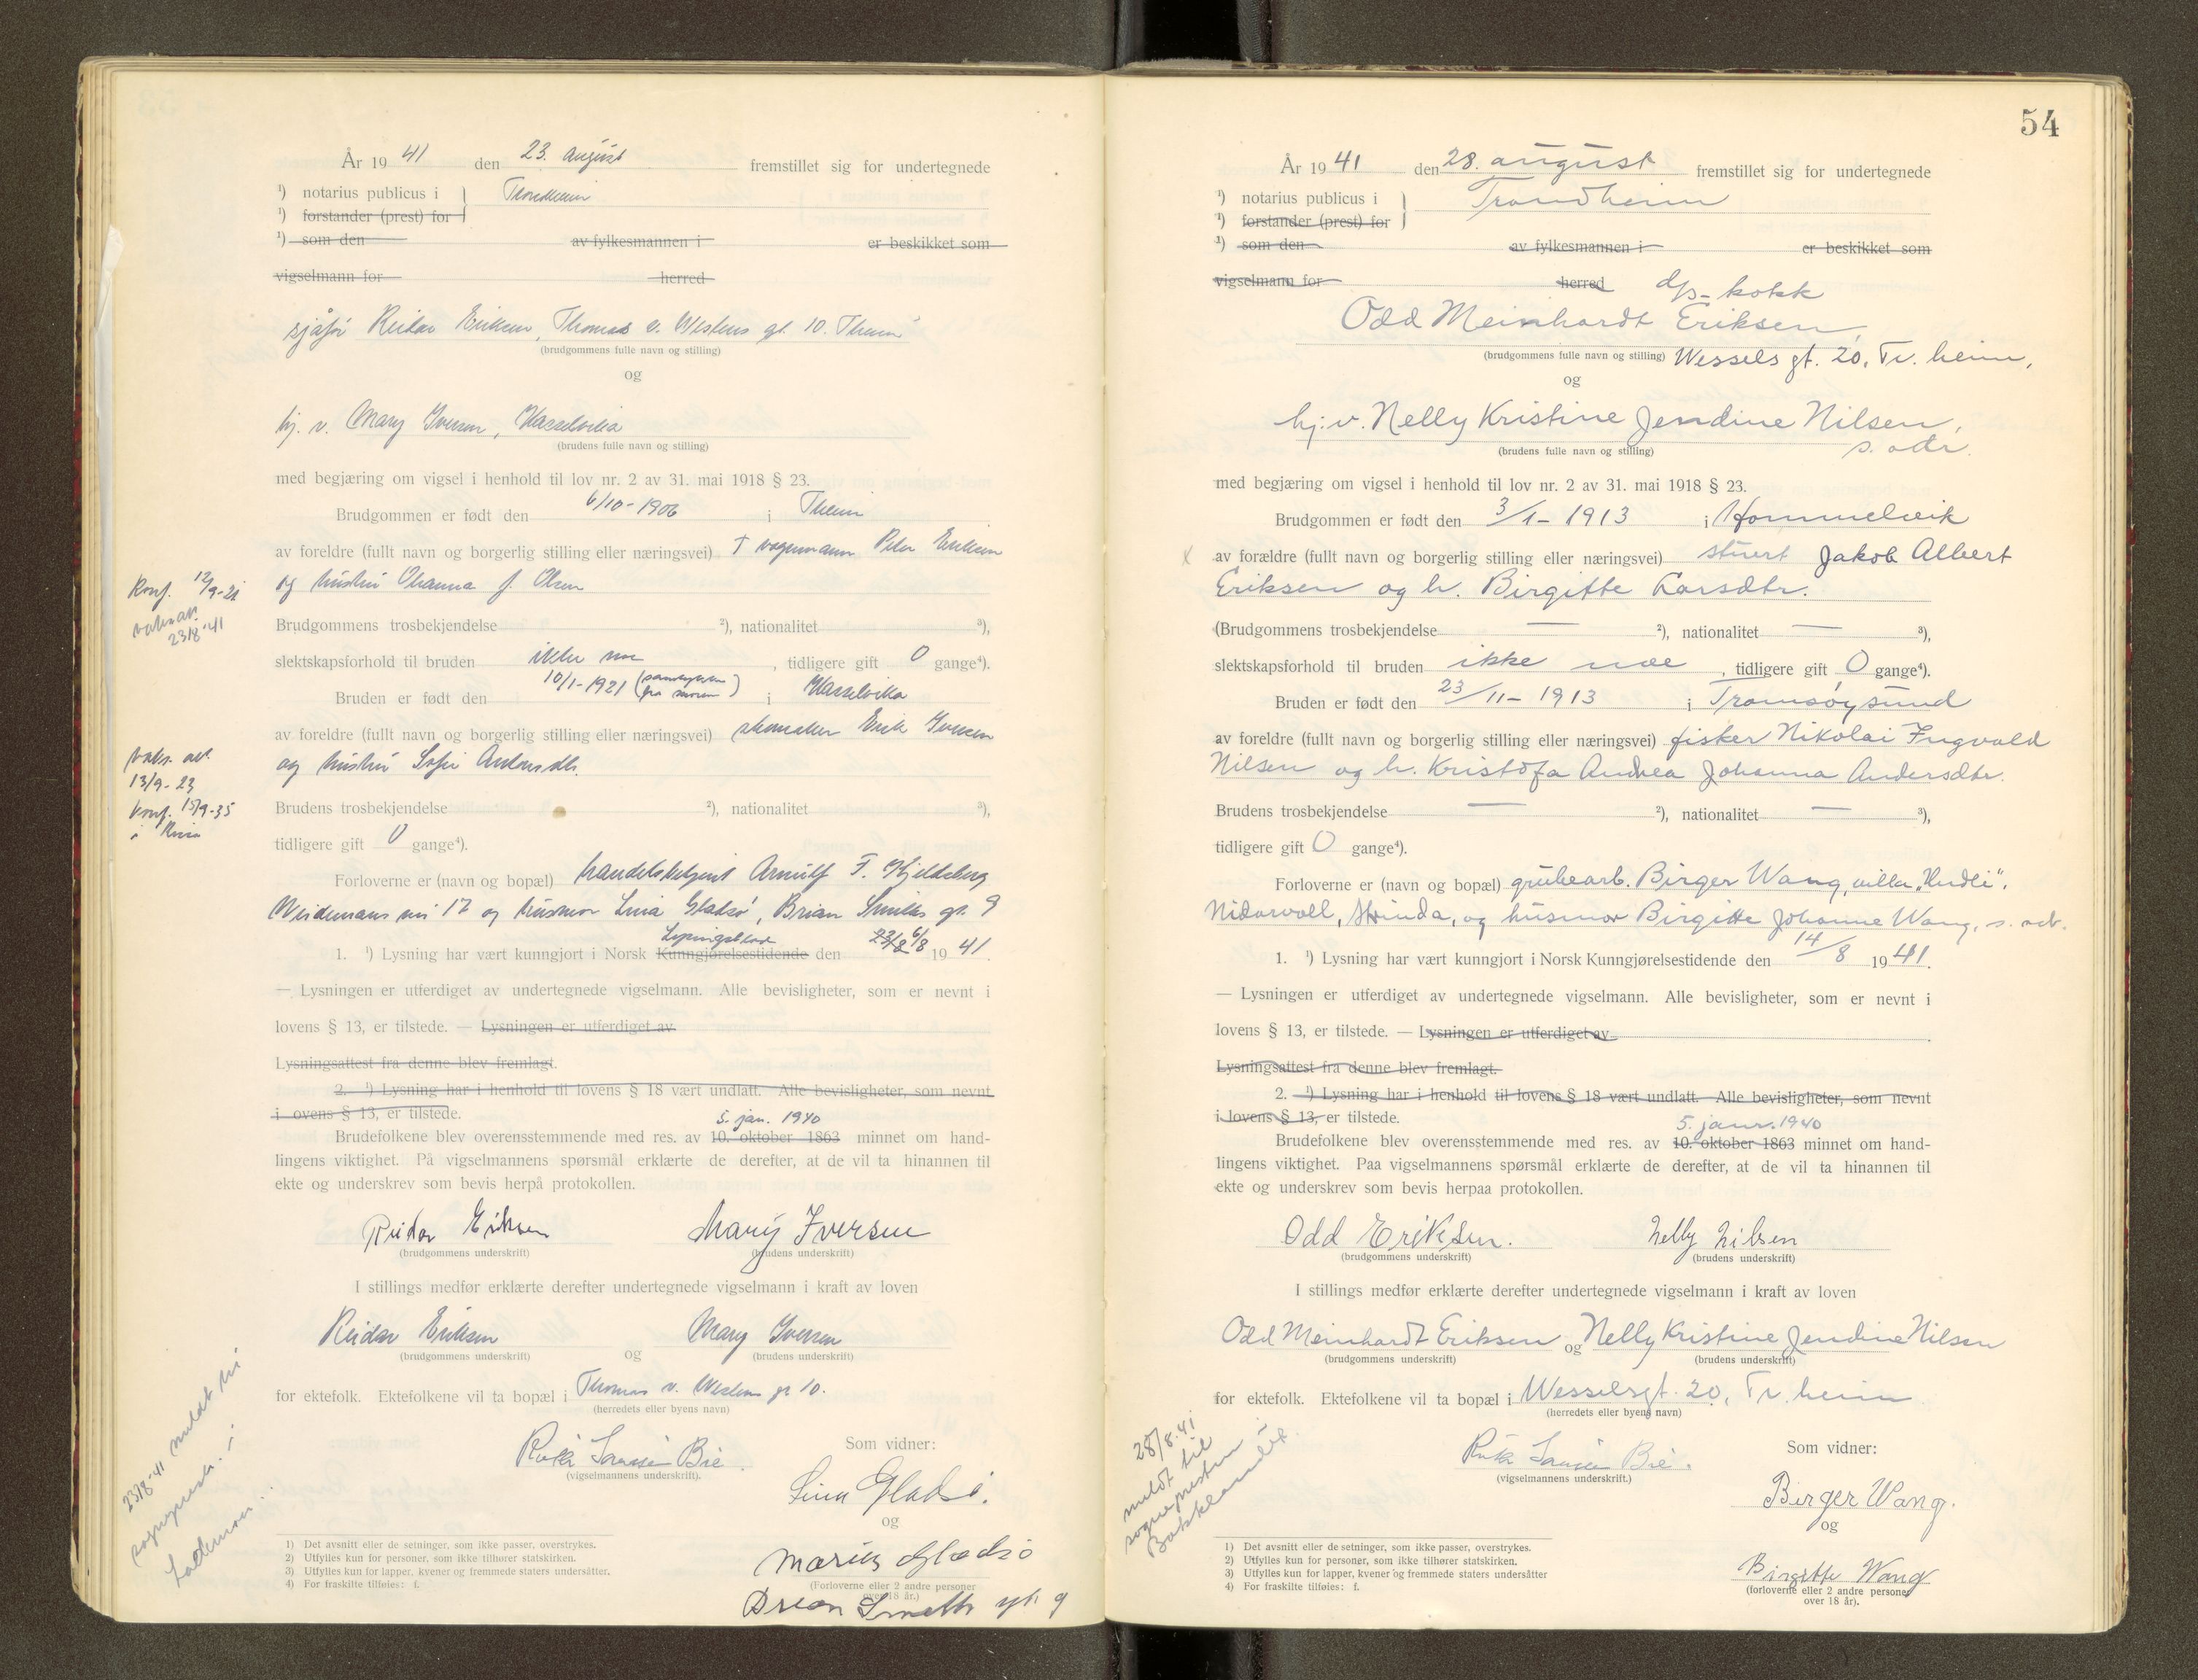 År 1941 den 23. august fremstillet sig for undertegnede
¹) notarius publicus i Trondheim
¹) forstander (prest) for
¹) som den av fylkesmannen i er beskikket som
vigselmann for herred
sjåfør Reidar Eriksen, Thomas v. Westens gt. 10. Theim
(brudgommens fulle navn og stilling)
og
hj. v. Mary Iversen, Hasselvika
(brudens fulle navn og stilling)
med begjæring om vigsel i henhold til lov nr. 2 av 31. mai 1918 § 23.
Brudgommen er født den 6/10-1906 i Theim
av foreldre (fullt navn og borgerlig stilling eller næringsvei) † vognmann Peter Eriksen
og hustru Ohanna f. Olsen
Konf. 12/9-21
vaks.att.
23/8-41
Brudgommens trosbekjendelse ²), nationalitet ³),
slektskapsforhold til bruden ikke noe, tidligere gift 0 gange⁴).
Bruden er født den 10/1-1921 (samtykke fra moren) i Hasselvika
av foreldre (fullt navn og borgerlig stilling eller næringsvei) skomaker Erik Iversen
og hustru Sofie Antonsdtr.
vaks. att.
13/9-23
konf. 15/9-35
i Rissa
Brudens trosbekjendelse ²), nationalitet ³),
tidligere gift 0 gange⁴).
Forloverne er (navn og bopæl) handelsbetjent Arnulf F. Hjeldsberg
Weidemans vei 17 og husmor Lina Gladsø, Brian Smiths gt. 9
1. ¹) Lysning har vært kunngjort i Norsk Kunngjørelsestidende Lysingsblad den 23/8 6/8 1941.
— Lysningen er utferdiget av undertegnede vigselmann. Alle bevisligheter, som er nevnt i
lovens § 13, er tilstede. — Lysningen er utferdiget av
Lysningsattest fra denne blev fremlagt.
2. ¹) Lysning har i henhold til lovens § 18 vært undlatt. Alle bevisligheter, som nevnt
i lovens § 13, er tilstede.
5. jan. 1940
Brudefolkene blev overensstemmende med res. av 10. oktober 1863 minnet om hand-
lingens viktighet. På vigselmannens spørsmål erklærte de derefter, at de vil ta hinannen til
ekte og underskrev som bevis herpå protokollen.
Reidar Eriksen Mary Iversen
(brudgommens underskrift) (brudens underskrift)
I stillings medfør erklærte derefter undertegnede vigselmann i kraft av loven
Reidar Eriksen og Mary Iversen
(brudgommens underskrift) (brudens underskrift)
for ektefolk. Ektefolkene vil ta bopæl i Thomas v. Westens gt 10.
(herredets eller byens navn)
23/8-41 meldt til
sogneprest. i
Lademoen
Som vidner:
(vigselmannens underskrift).
Lina Gladsø.
og
Marius Gladsø
(Forloverne eller 2 andre personer
over 18 år.)
Brian Smiths gt. 9
1) Det avsnitt eller de setninger, som ikke passer, overstrykes.
2) Utfylles kun for personer, som ikke tilhører statskirken.
3) Utfylles kun for lapper, kvener og fremmede staters undersåtter.
4) For fraskilte tilføies: f.
54
År 1941 den 28. august fremstillet sig for undertegnede
¹) notarius publicus i Trondheim
¹) forstander (prest) for
¹) som den av fylkesmannen i er beskikket som
vigselmann for herred
d/s-kokk
Odd Meinhardt Eriksen,
(brudgommens fulle navn og stilling) Wessels gt. 20. Tr. heim,
og
hj.v. Nelly Kristine Jendine Nilsen,
s. adr.
(brudens fulle navn og stilling)
med begjæring om vigsel i henhold til lov nr. 2 av 31. mai 1918 § 23.
Brudgommen er født den 3/1-1913 i Hommelvik
x av forældre (fullt navn og borgerlig stilling eller næringsvei) stuert Jakob Albert
Eriksen og h. Birgitte Larsdtr.
(Brudgommens trosbekjendelse — ²), nationalitet — ³),
slektskapsforhold til bruden ikke noe, tidligere gift 0 gange⁴).
Bruden er født den 23/11-1913 i Tromsøysund
av foreldre (fullt navn og borgerlig stilling eller næringsvei) fisker Nikolai Ingvald
Nilsen og h. Kristofa Andrea Johanna Andersdtr.
Brudens trosbekjendelse — ²), nationalitet — ³),
tidligere gift 0 gange⁴).
Forloverne er (navn og bopæl) grubearb. Birger Wang, villa „Hudli”,
Nidarvoll, Strinda, og husmor Birgitte Johanne Wang, s. adr.
1. ¹) Lysning har vært kunngjort i Norsk Kunngjørelsestidende den 14/8 1941.
— Lysningen er utferdiget av undertegnede vigselmann. Alle bevisligheter, som er nevnt i
lovens § 13, er tilstede. — Lysningen er utferdiget av
Lysningsattest fra denne blev fremlagt.
2. ¹) Lysning har i henhold til lovens § 18 vært undlatt. Alle bevisligheter, som nevnt
i lovens § 13, er tilstede.
5. janr. 1940
Brudefolkene blev overensstemmende med res. av 10. oktober 1863 minnet om hand-
lingens viktighet. Paa vigselmannens spørsmål erklærte de derefter, at de vil ta hinannen til
ekte og underskrev som bevis herpaa protokollen.
Odd Eriksen. Nelly Nilsen
(brudgommens underskrift) (brudens underskrift)
I stillings medfør erklærte derefter undertegnede vigselmann i kraft av loven
Odd Meinhardt Eriksen og Nelly Kristine Jendine Nilsen
(brudgommens underskrift) (brudens underskrift)
for ektefolk. Ektefolkene vil ta bopæl i Wesselsgt. 20, Tr. heim
(herredets eller byens navn)
28/8.41
meldt til
sognepresten i
Bakklandet
Som vidner:
(vigselmannens underskrift.)
Birger Wang.
og
Birgitte Wang
(forloverne eller 2 andre personer
over 18 år).
1) Det avsnitt eller de setninger, som ikke passer, overstrykes.
2) Utfylles kun for personer, som ikke tilhører statskirken.
3) Utfylles kun for lapper, kvener og fremmede staters undersåtter
4) For fraskilte tilføies: f.